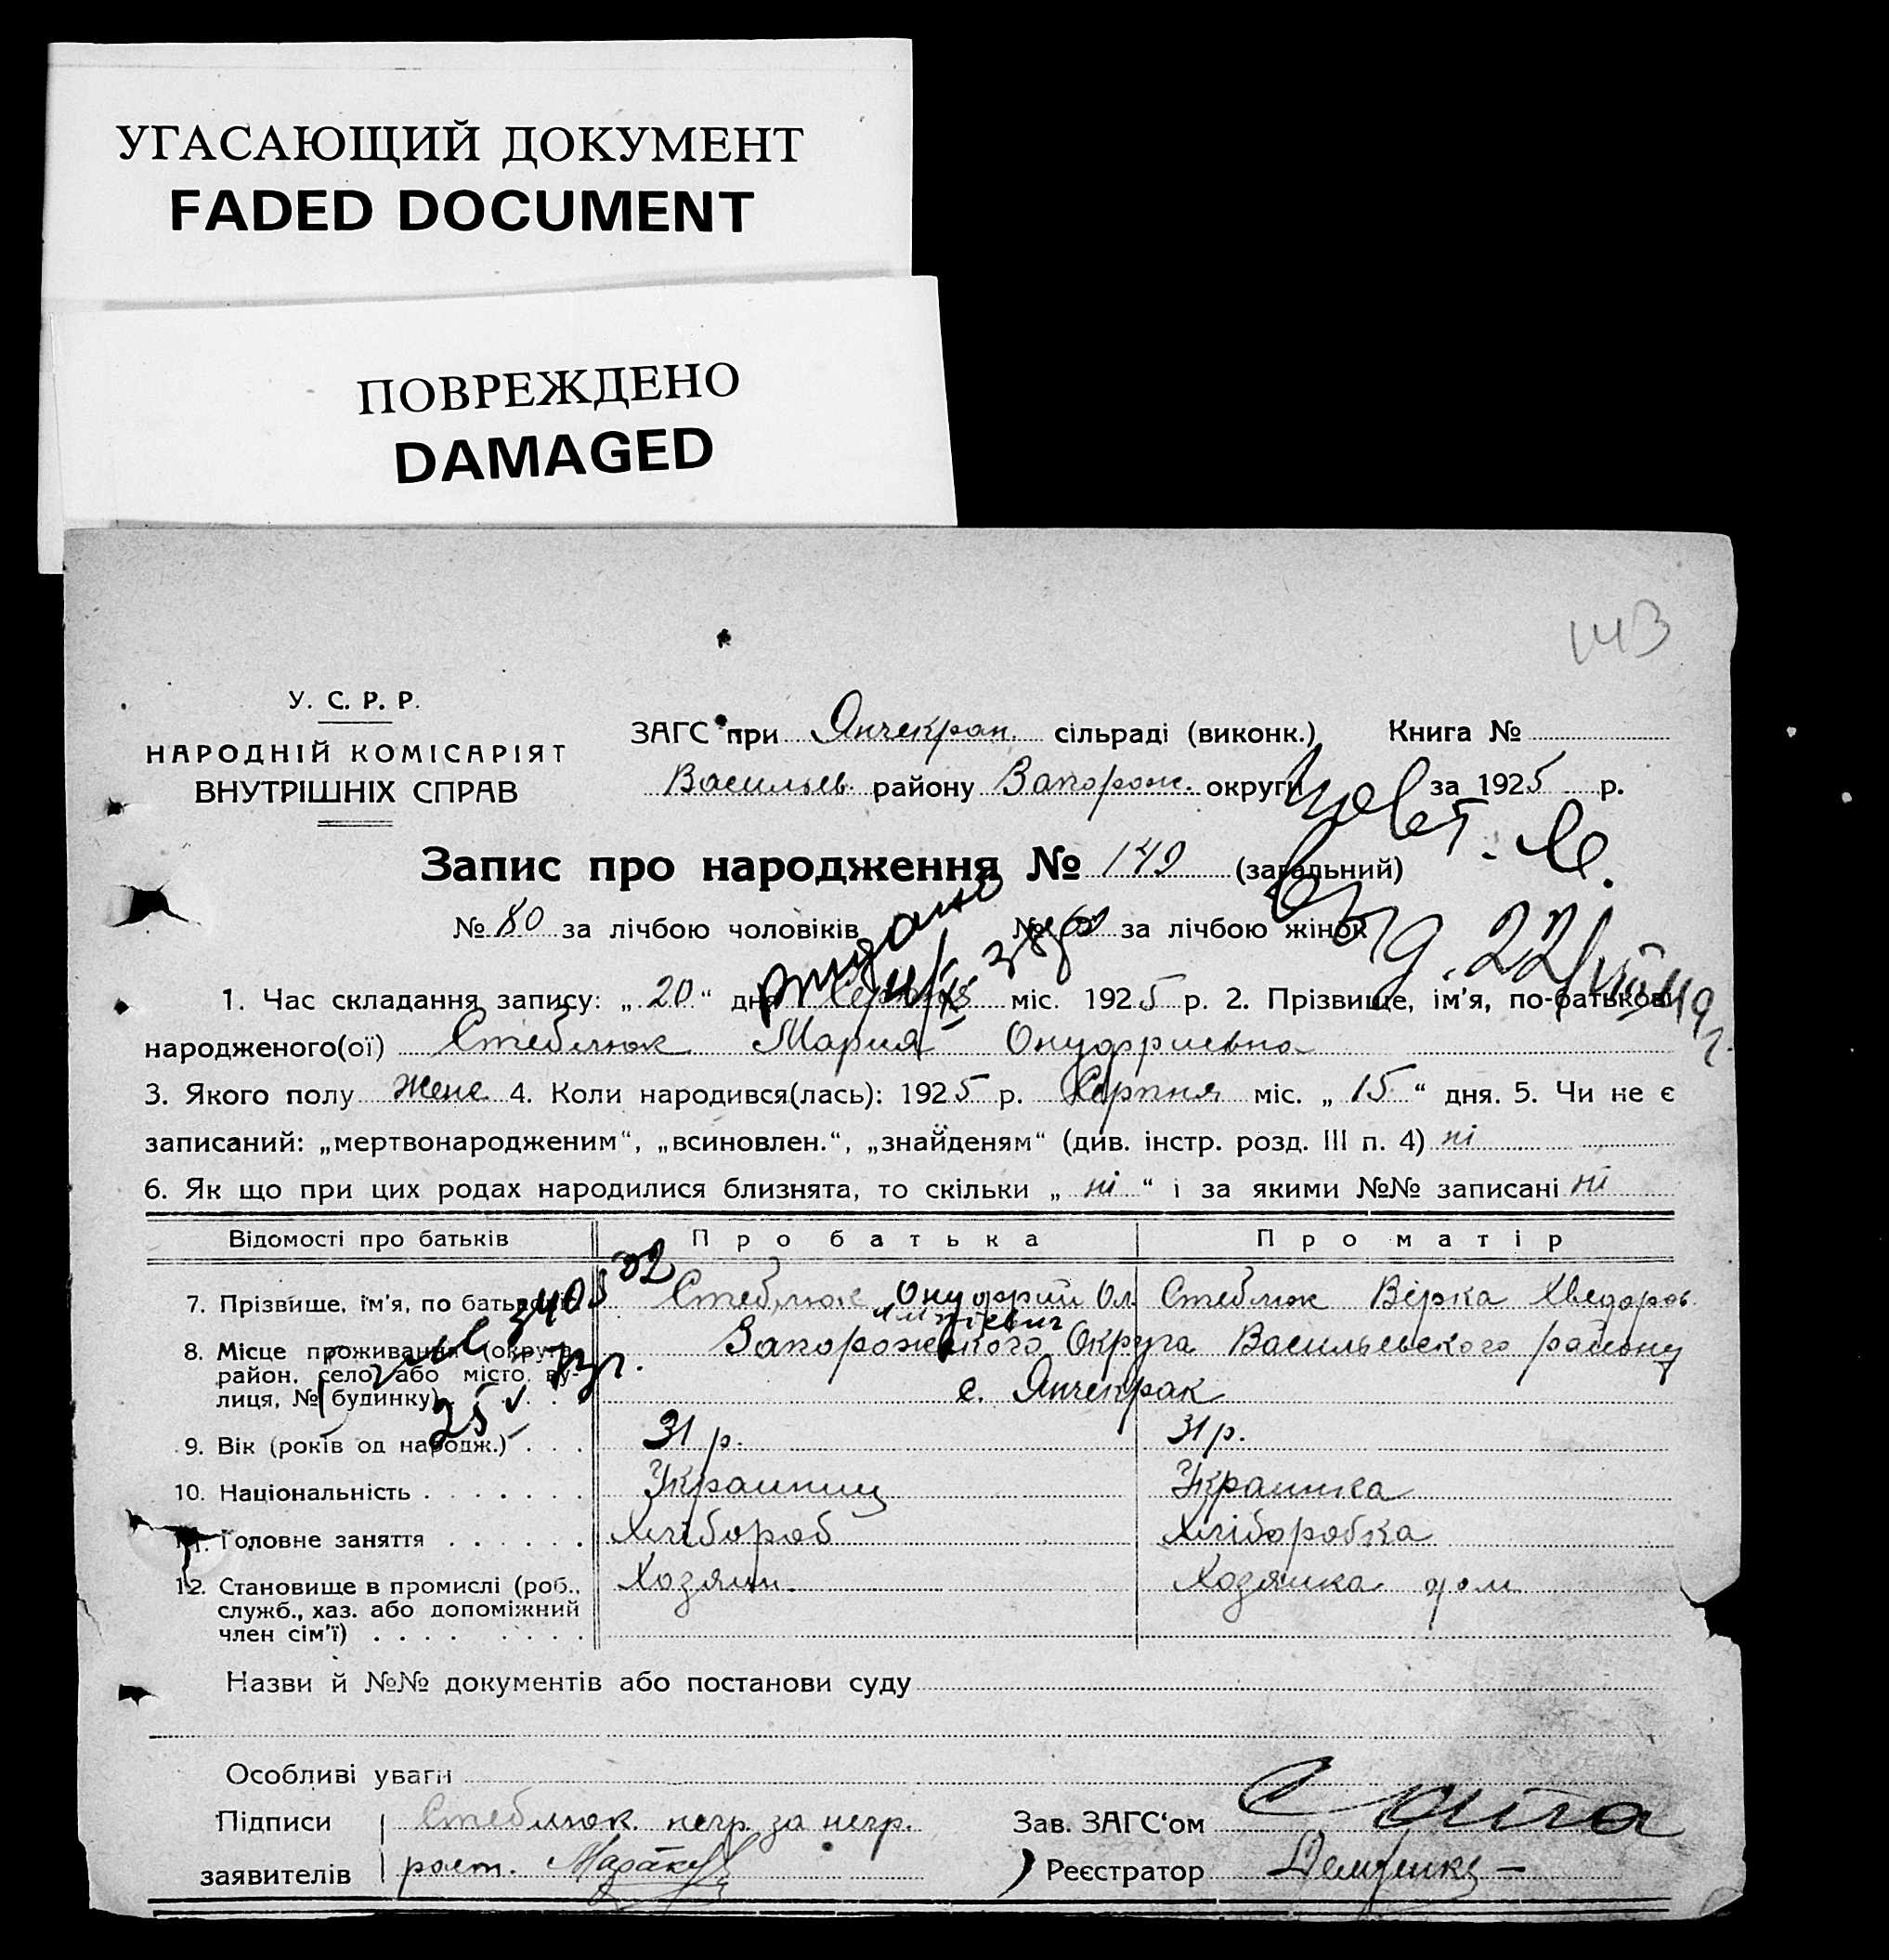 УГАСАЮЩИЙ ДОКУМЕНТ
FADED DOCUMENT
ПОВРЕЖДЕНО
DAMAGED
143
У. С. Р. Р.
НАРОДНІЙ КОМІСАРІЯТ
ВНУТРІШНІХ СПРАВ
ЗАГС при Янчекрак. сільраді (виконк.) Книга №
Васильев. району Запорож. округи за 1925 р.
Запис про народження № 149 (загальний)
№ 80 за лічбою чоловіків № за лічбою жінок
1. Час складання запису: „ 20 “ дня Серпня міс. 1925 р. 2. Прізвище, ім'я, по-батькові
народженого(ої) Стеблюк Мария Онуфриевна
3. Якого полу жене 4. Коли народився(лась): 1925 р. Серпня міс. „ 15 “ дня. 5. Чи не є
записаний: „мертвонародженим“, „всиновлен.“, „знайденям“ (див. інстр. розд. III п. 4) ні
6. Як що при цих родах народилися близнята, то скільки „ ні “ і за якими №№ записані ні
Відомості про батьків Про батька Про матір
7. Прізвище, ім'я, по батькові. Стеблюк Онуфрий Ол Стеблюк Вірка Хведоров.
8. Місце проживання (округа, Запорожского Округа Васильевского району
район, село або місто, ву- с. Янчекрак
лиця, № будинку)
9. Вік (років од народж.) 31 р. 31 р.
10. Національність Украинец Украинка
11. Головне заняття Хлібороб Хліборобка
12. Становище в промислі (роб., Хозяин. Хозяйка дом
служб., хаз. або допоміжний
член сім'ї)
Назви й №№ документів або постанови суду
Особливі уваги
Підписи Стеблюк негр. за негр.
Зав. ЗАГС'ом
заявителів раст.
Реєстратор